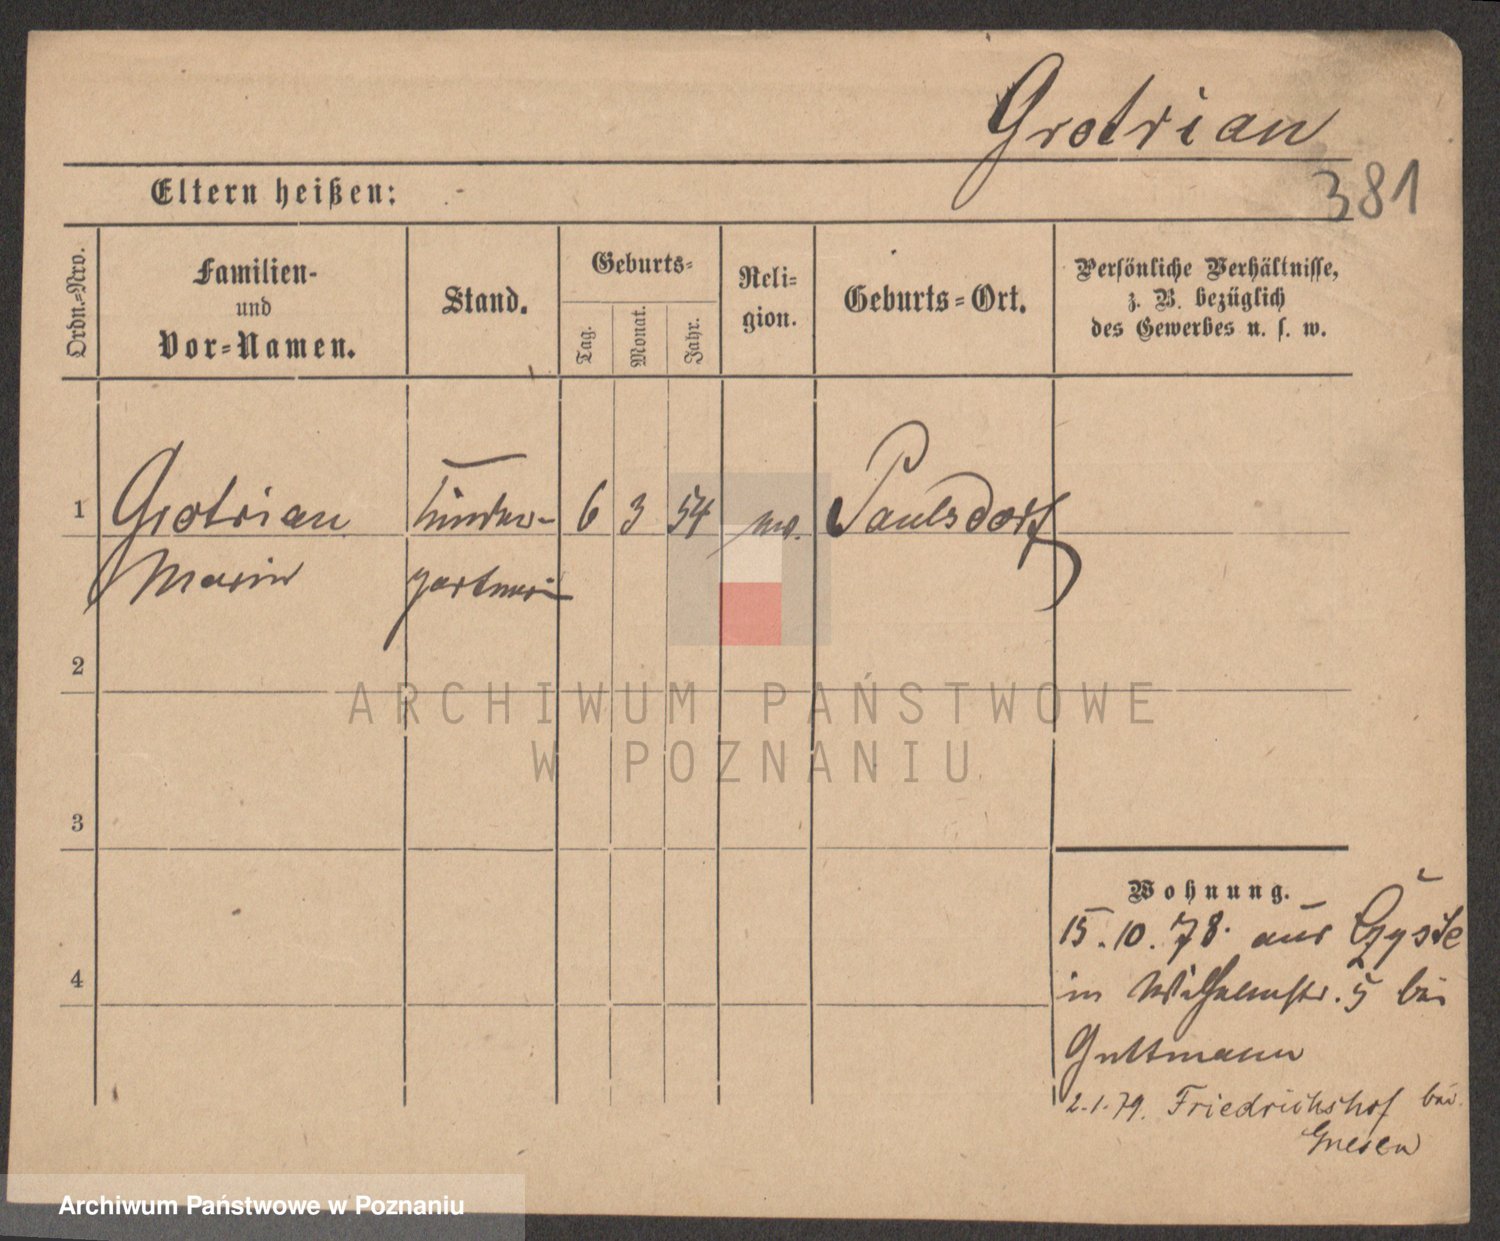 Grotrian
381
Eltern heißen:
Ordn.=Nro.
Familien-
und
Vor=Namen.
Stand.
Geburts=
Tag.
Monat.
Jahr.
Reli=
gion.
Geburts=Ort.
Persönliche Verhältnisse,
z. B. bezüglich
des Gewerbes u. s. w.
1
Grotrian
Marie
Kinder-
gärtnerin
6
3
54
ev.
Paulsdorf
2
3
4
Wohnung.
15.10.78. aus
in Wilhelmstr. 5 bei
Guttmann
2.1.79. Friedrichshof bei
Gnesen
ARCHIWUM PAŃSTWOWE
W POZNANIU
Archiwum Państwowe w Poznaniu